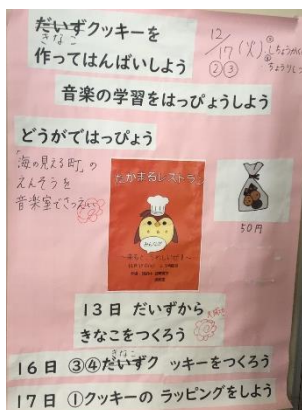 だいずクッキーを
きなこ
作ってはんばいしよう
12/17(火)
②③
音楽の学習をはっぴょうしよう
どうがではっぴょう
「海の見える町」の
えんそうを
音楽室でさつえい
たかまるレストラン
50円
13日 だいずから
きなこをつくろう
きなこ
16日 ③④だいずクッキーをつくろう
17日 ①クッキーの ラッピングをしよう